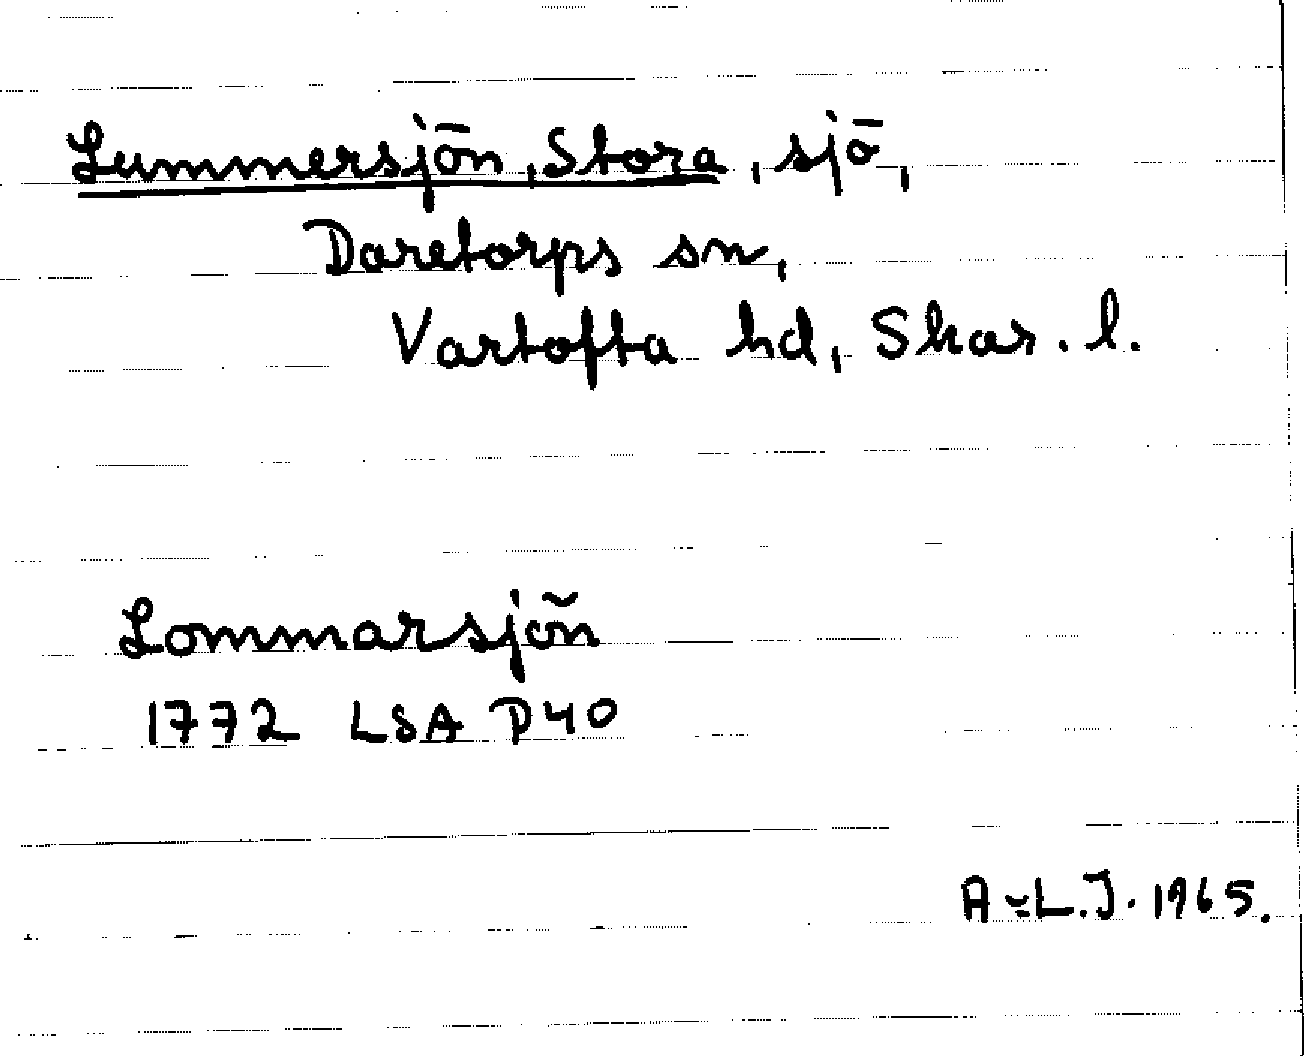 Lummersjön, Stora, sjö,
Daretorps sn,
Vartofta hd, Skar. l.
Lommarsjön
1772 LSA P40
A-L.J. 1965.